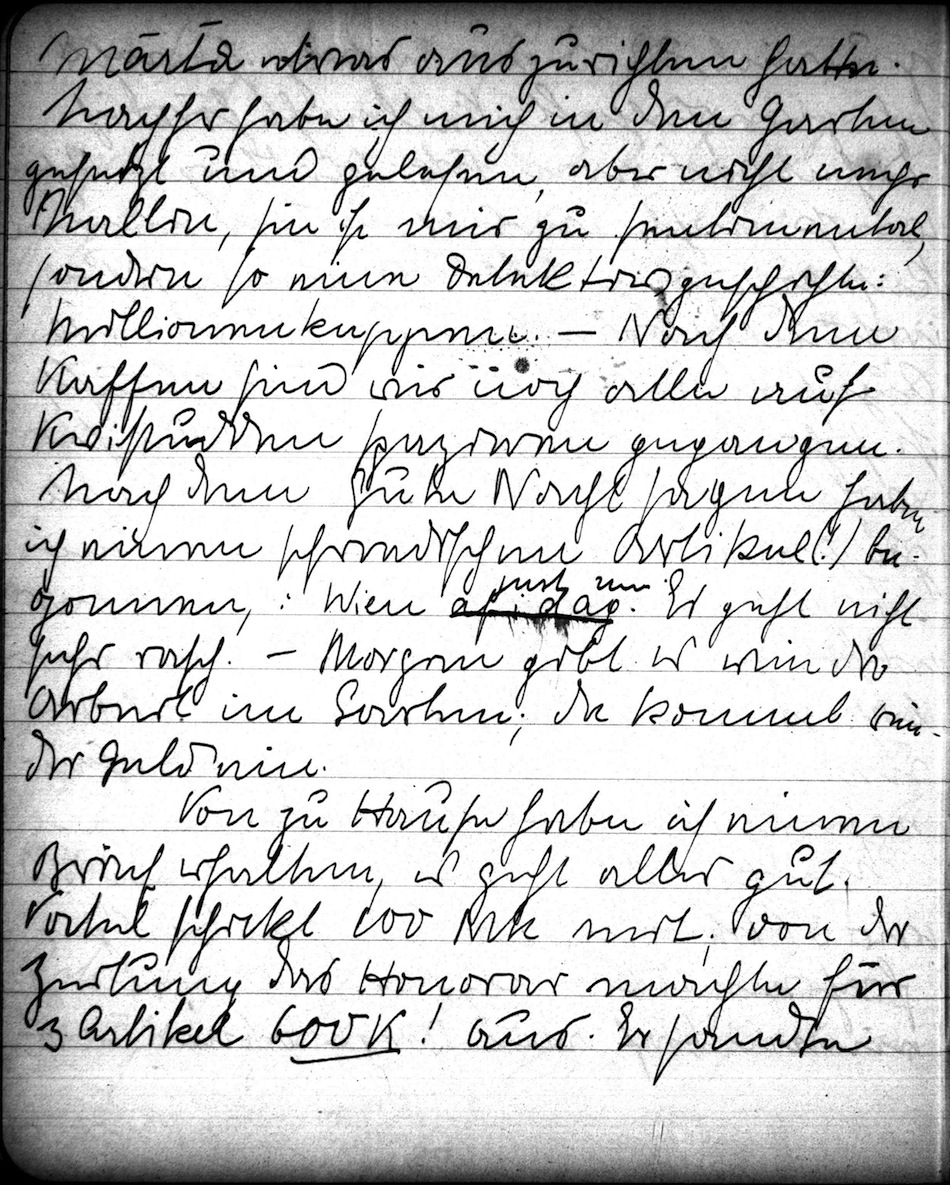 Märta etwas auszurichten hatte.
Nachher habe ich mich in den Garten
gesetzt und gelesen, aber nicht mehr
sie ist mir zu sentimental,
sondern so eine Detektivgeschichte:
Nach dem
Kaffee sind wir noch alle auf
spazieren gegangen.
Nach dem Gute Nacht sagen habe
ich einen schwedischen Artikel(!) be-
gonnen, : Wien just nu. Es geht nicht
sehr rasch. – Morgen gibt es wieder
Arbeit im Garten; da kommt wie-
der Geld ein.
Von zu Hause habe ich einen
Brief erhalten, es geht alles gut.
Vatel schickt 100 Mk mit; von der
Zeitung das Honorar machte für
3 Artikel 600 K! aus. Er sandte